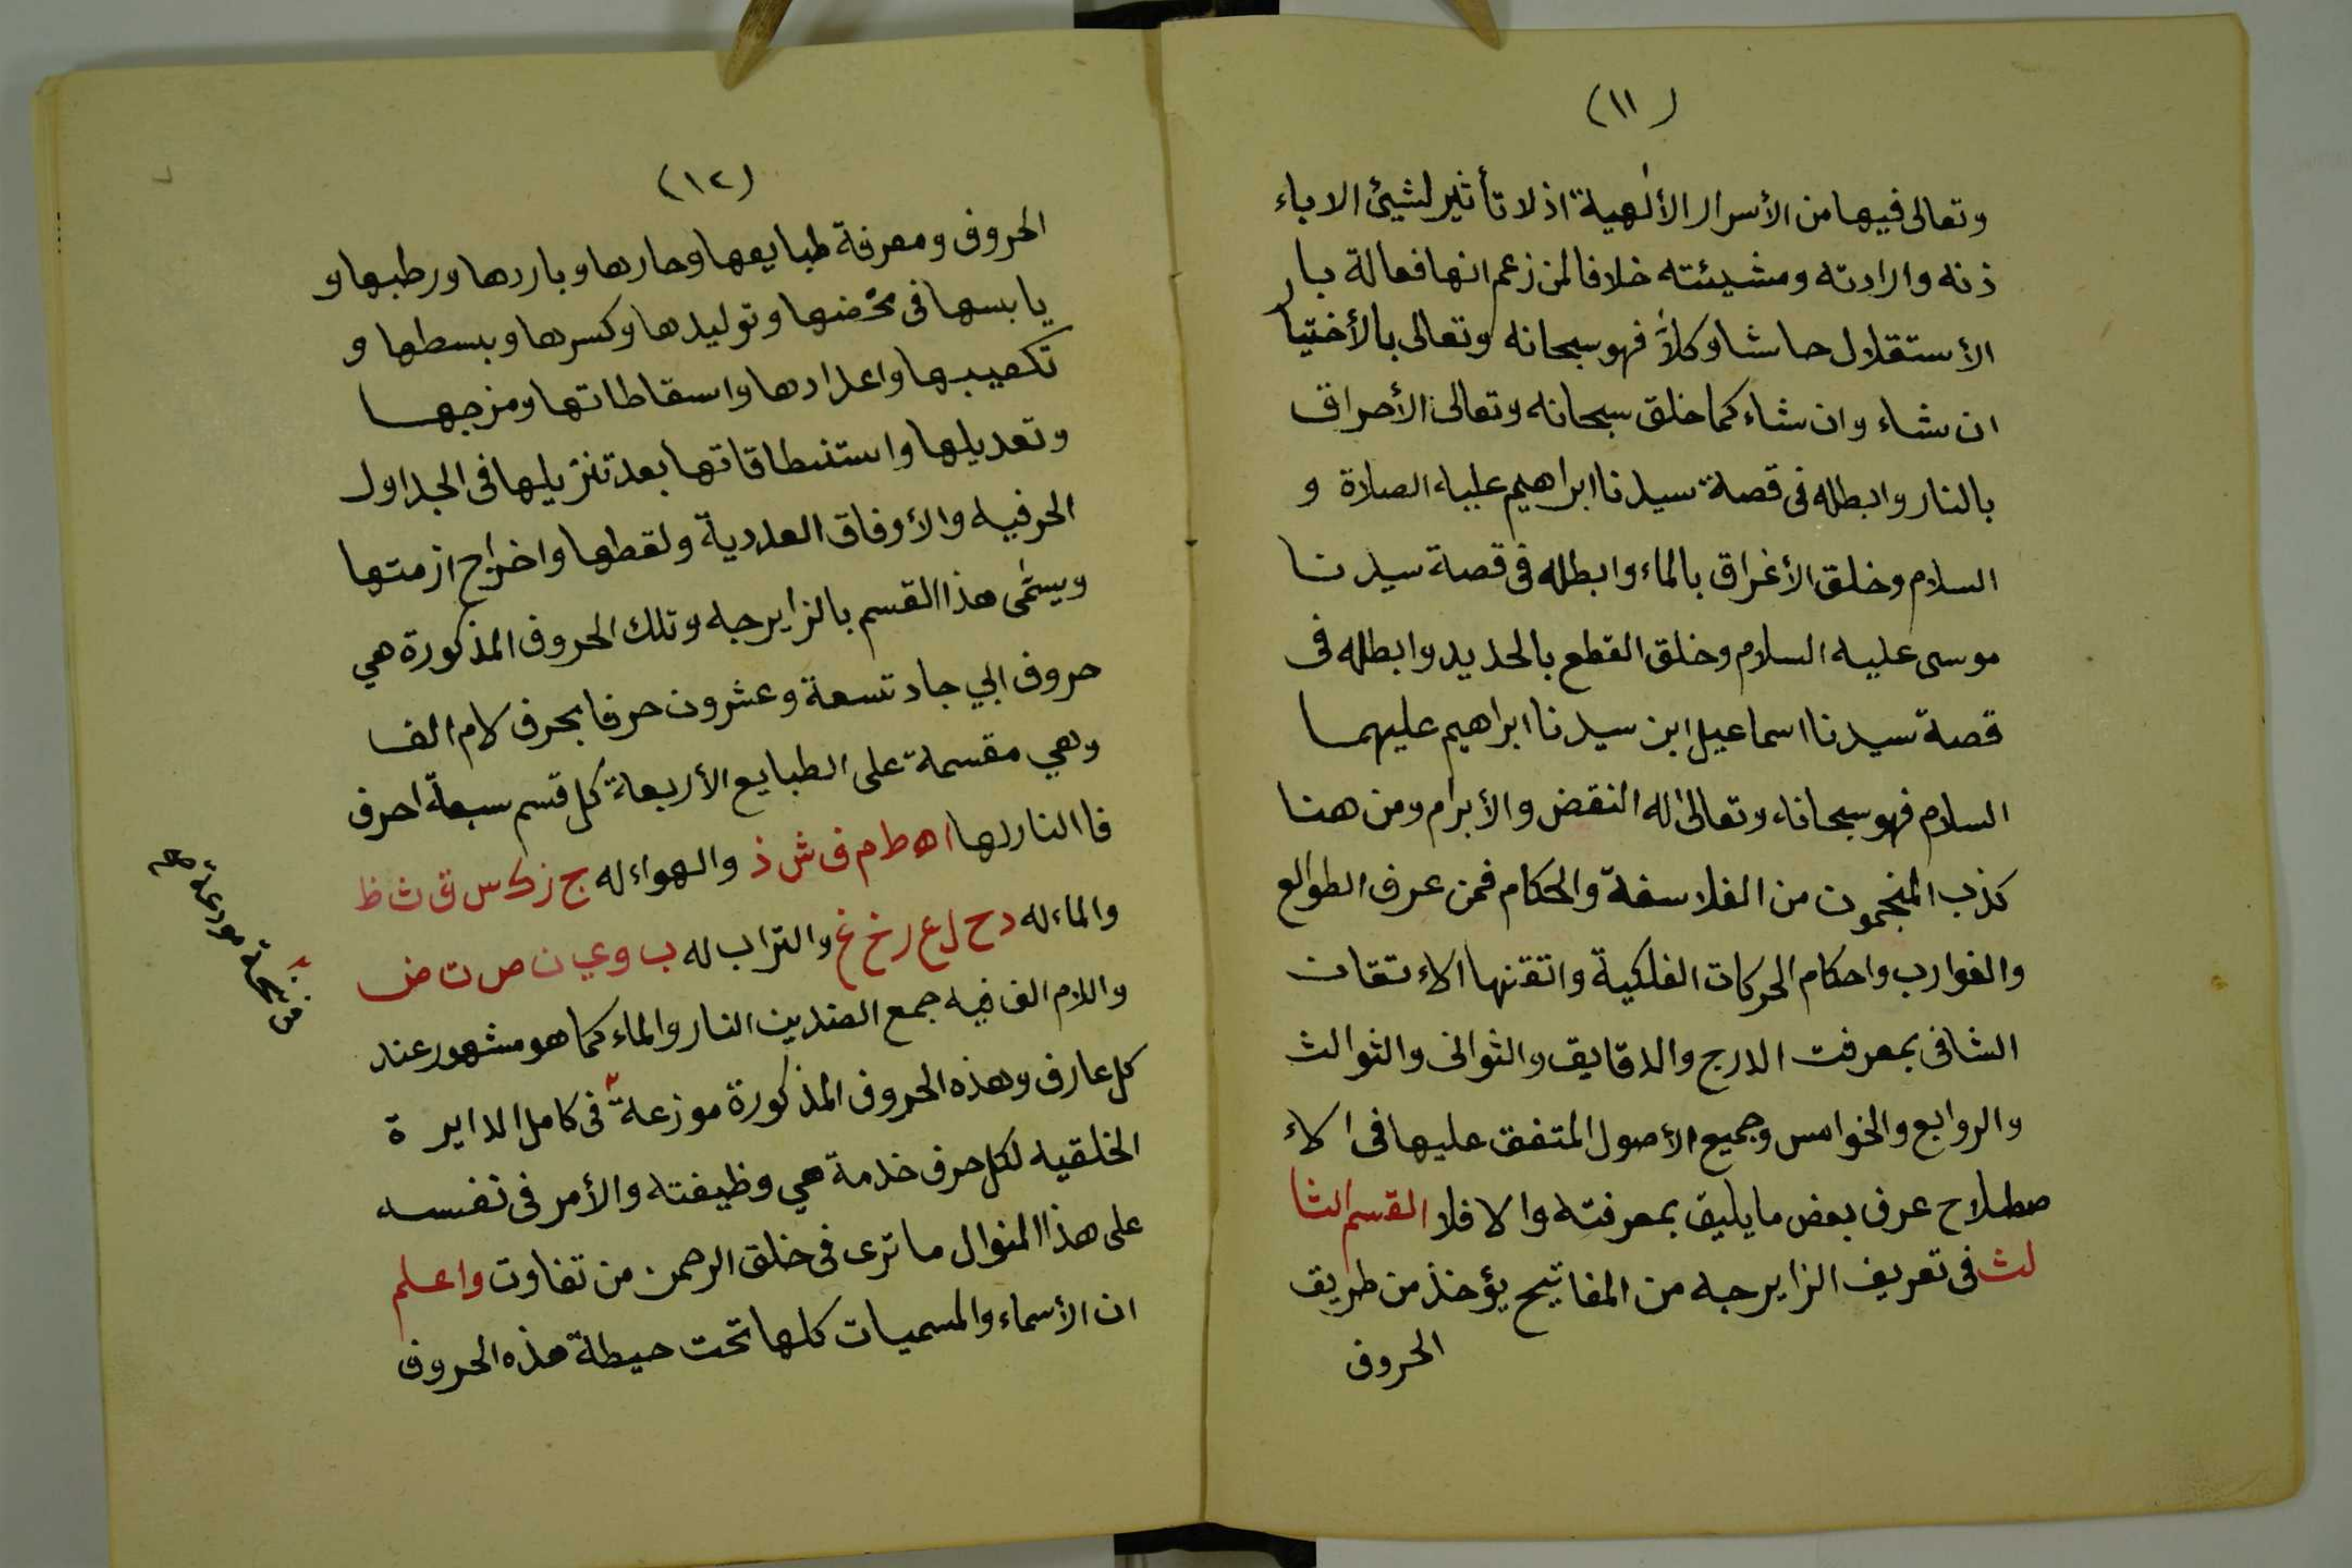 (١١)
وتعالى فيها من الأسرار الألهية اذ لا تأثير لشيئ الا باء
ذنه وارادته ومشيئته خلافا لمن زعم انها فعالة بار
الأستقلال حاشا وكلاّ فهو سبحانه وتعالى بالأختيا
ان شاء وان شاء كما خلق سبحانه وتعالى الأحراق
بالنار وابطله فى قصة سيدنا ابراهيم عليه الصلاة و
السلام وخلق الأغراق بالماء وابطله فى قصة سيدنا
موسى عليه السلام وخلق القطع بالحديد وابطله فى
قصة سيدنا اسماعيل ابن سيدنا ابراهيم عليهما
السلام فهو سبحانه وتعالى له النقض والأبرام ومن هنا
كذب المنجمون من الفلاسفة والحكام فمن عرف الطوالع
والغوارب واحكام الحركات الفلكية واتقنها الاءتقان
الشافى بمعرفت الدرج والدقايق والثوانى والثوالث
والروابع والخوامس وجميع الأصول المتفق عليها فى الاء
صطلاح عرف بعض ما يليق بمعرفته والا فلا القسم الثا
لث فى تعريف الزايرجه من المفاتيح يؤخذ من طريق
الحروف
(١٢)
الحروف ومعرفة طبايعها وحارها وباردها ورطبها و
يابسها فى مخضها وتوليدها وكسرها وبسطها و
تكعيبها واعدادها واسقاطاتها ومزجها
وتعديلها واستنطاقاتها بعد تنزيلها فى الجداول
الحرفيه والأوفاق العددية ولقطها واخراج ازمتها
ويسمّى هذا القسم بالزايرجه وتلك الحروف المذكورة هي
حروف ابي جاد تسعة وعشرون حرفا بحرف لام الف
وهي مقسمة على الطبايع الأربعة كل قسم سبعة احرف
فا النار لها ا ه ط م ف ش ذ والهواء له ج ز ك س ق ث ظ
والماء له د ح ل ع ر خ غ والتراب له ب و ي ن ص ت ض
واللام الف فيه جمع الضدين النار والماء كما هو مشهور عند
كل عارف وهذه الحروف المذكورة موزعة فى كامل الدايرة
الخلقيه لكل حرف خدمة هي وظيفته والأمر فى نفسه
على هذا المنوال ما ترى فى خلق الرحمن من تفاوت واعلم
ان الأسماء والمسميات كلها تحت حيطة هذه الحروف